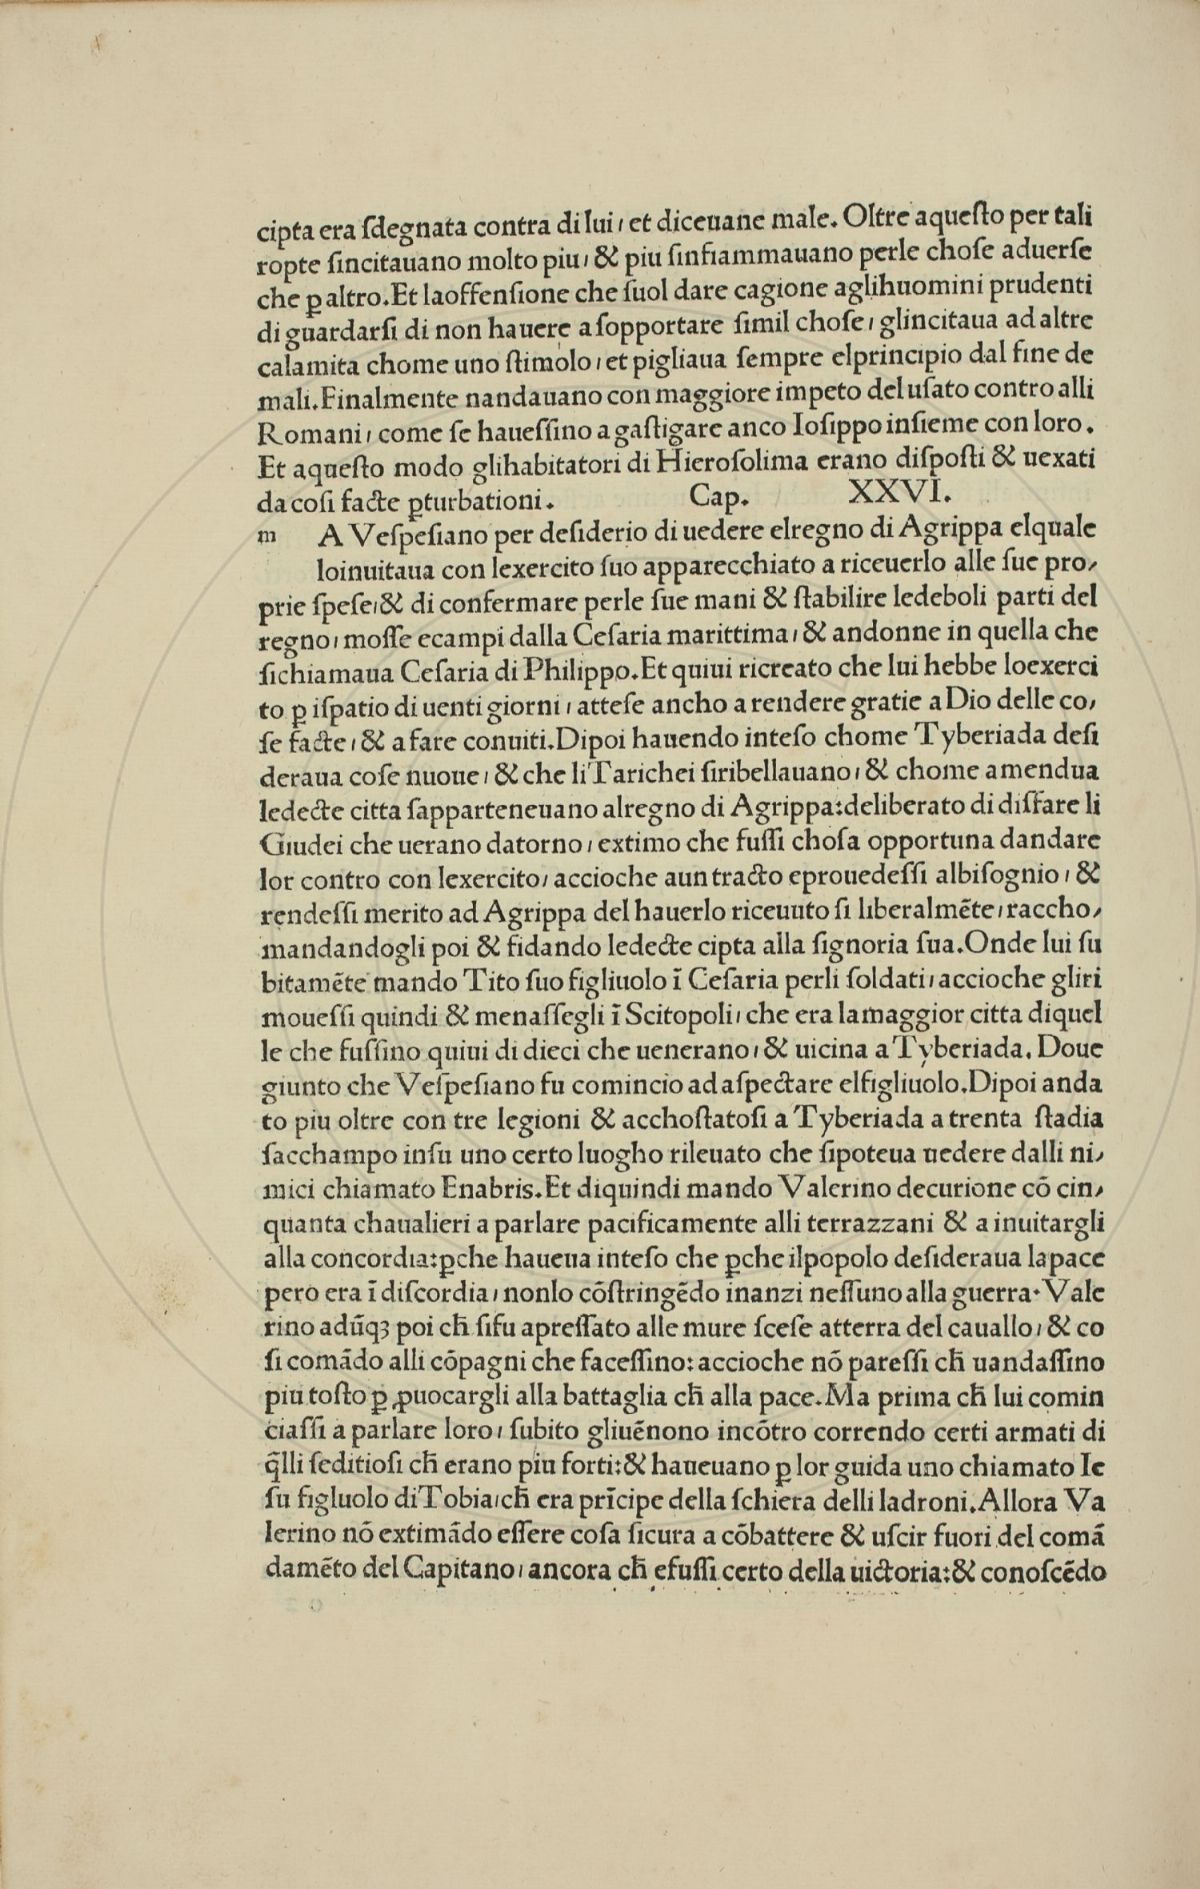 cipta era ſdegnata contra di lui, et diceuane male. Oltre aqueſto per tali
ropte ſincitauano molto piu, & piu ſinfiammauano perle choſe aduerſe
che ꝑ altro. Et laoffenſione che ſuol dare cagione aglihuomini prudenti
di guardarſi di non hauere a ſopportare ſimil choſe, glincitaua ad altre
calamita chome uno ſtimolo, et pigliaua ſempre elprincipio dal fine de
mali. Finalmente nandauano con maggiore impeto del uſato contro alli
Romani, come ſe haueſſino a gaſtigare anco Ioſippo inſieme con loro.
Et aqueſto modo glihabitatori di Hieroſolima erano diſpoſti & uexati
da coſi facte ꝑturbationi. Cap. XXVI.
m A Veſpeſiano per deſiderio di uedere elregno di Agrippa elquale
loinuitaua con lexercito ſuo apparecchiato a riceuerlo alle ſue pro,
prie ſpeſe, & di confermare perle ſue mani & ſtabilire ledeboli parti del
regno, moſſe ecampi dalla Ceſaria marittima, & andonne in quella che
ſichiamaua Ceſaria di Philippo. Et quiui ricreato che lui hebbe loexerci
to ꝑ iſpatio di uenti giorni, atteſe ancho a rendere gratie a Dio delle co,
ſe facte, & a fare conuiti. Dipoi hauendo inteſo chome Tyberiada deſi
deraua coſe nuoue, & che li Tarichei ſiribellauano, & chome amendua
ledecte citta ſapparteneuano alregno di Agrippa: deliberato di disfare li
Giudei che uerano datorno, extimo che fuſſi choſa opportuna dandare
lor contro con lexercito, accioche aun tracto eprouedeſſi albiſognio, &
rendeſſi merito ad Agrippa del hauerlo riceuuto ſi liberalmēte, raccho,
mandandogli poi & fidando ledecte cipta alla ſignoria ſua. Onde lui ſu
bitamēte mando Tito ſuo figliuolo ī Ceſaria perli ſoldati, accioche gliri
moueſſi quindi & menaſſegli ī Scitopoli, che era lamaggior citta diquel
le che fuſſino quiui di dieci che uenerano, & uicina a Tyberiada. Doue
giunto che Veſpeſiano fu comincio ad aſpectare elfigliuolo. Dipoi anda
to piu oltre con tre legioni & acchoſtatoſi a Tyberiada a trenta ſtadia
ſacchampo inſu uno certo luogho rileuato che ſipoteua uedere dalli ni,
mici chiamato Enabris. Et diquindi mando Valerino decurione cō cin,
quanta chaualieri a parlare pacificamente alli terrazzani & a inuitargli
alla concordia: ꝑche haueua inteſo che ꝑche ilpopolo deſideraua lapace
pero era ī diſcordia, nonlo cōſtringēdo inanzi neſſuno alla guerra. Vale
rino adūqꝫ poi cħ ſifu apreſſato alle mure ſceſe atterra del cauallo, & co
ſi comādo alli cōpagni che faceſſino: accioche nō pareſſi cħ uandaſſino
piu toſto ꝑ ꝓuocargli alla battaglia cħ alla pace. Ma prima cħ lui comin
ciaſſi a parlare loro, ſubito gliuēnono incōtro correndo certi armati di
q̄lli ſeditioſi cħ erano piu forti: & haueuano ꝑ lor guida uno chiamato Ie
ſu figluolo di Tobia, cħ era prīcipe della ſchiera delli ladroni. Allora Va
lerino nō extimādo eſſere coſa ſicura a cōbattere & uſcir fuori del comā
damēto del Capitano, ancora cħ efuſſi certo della uictoria: & conoſcēdo